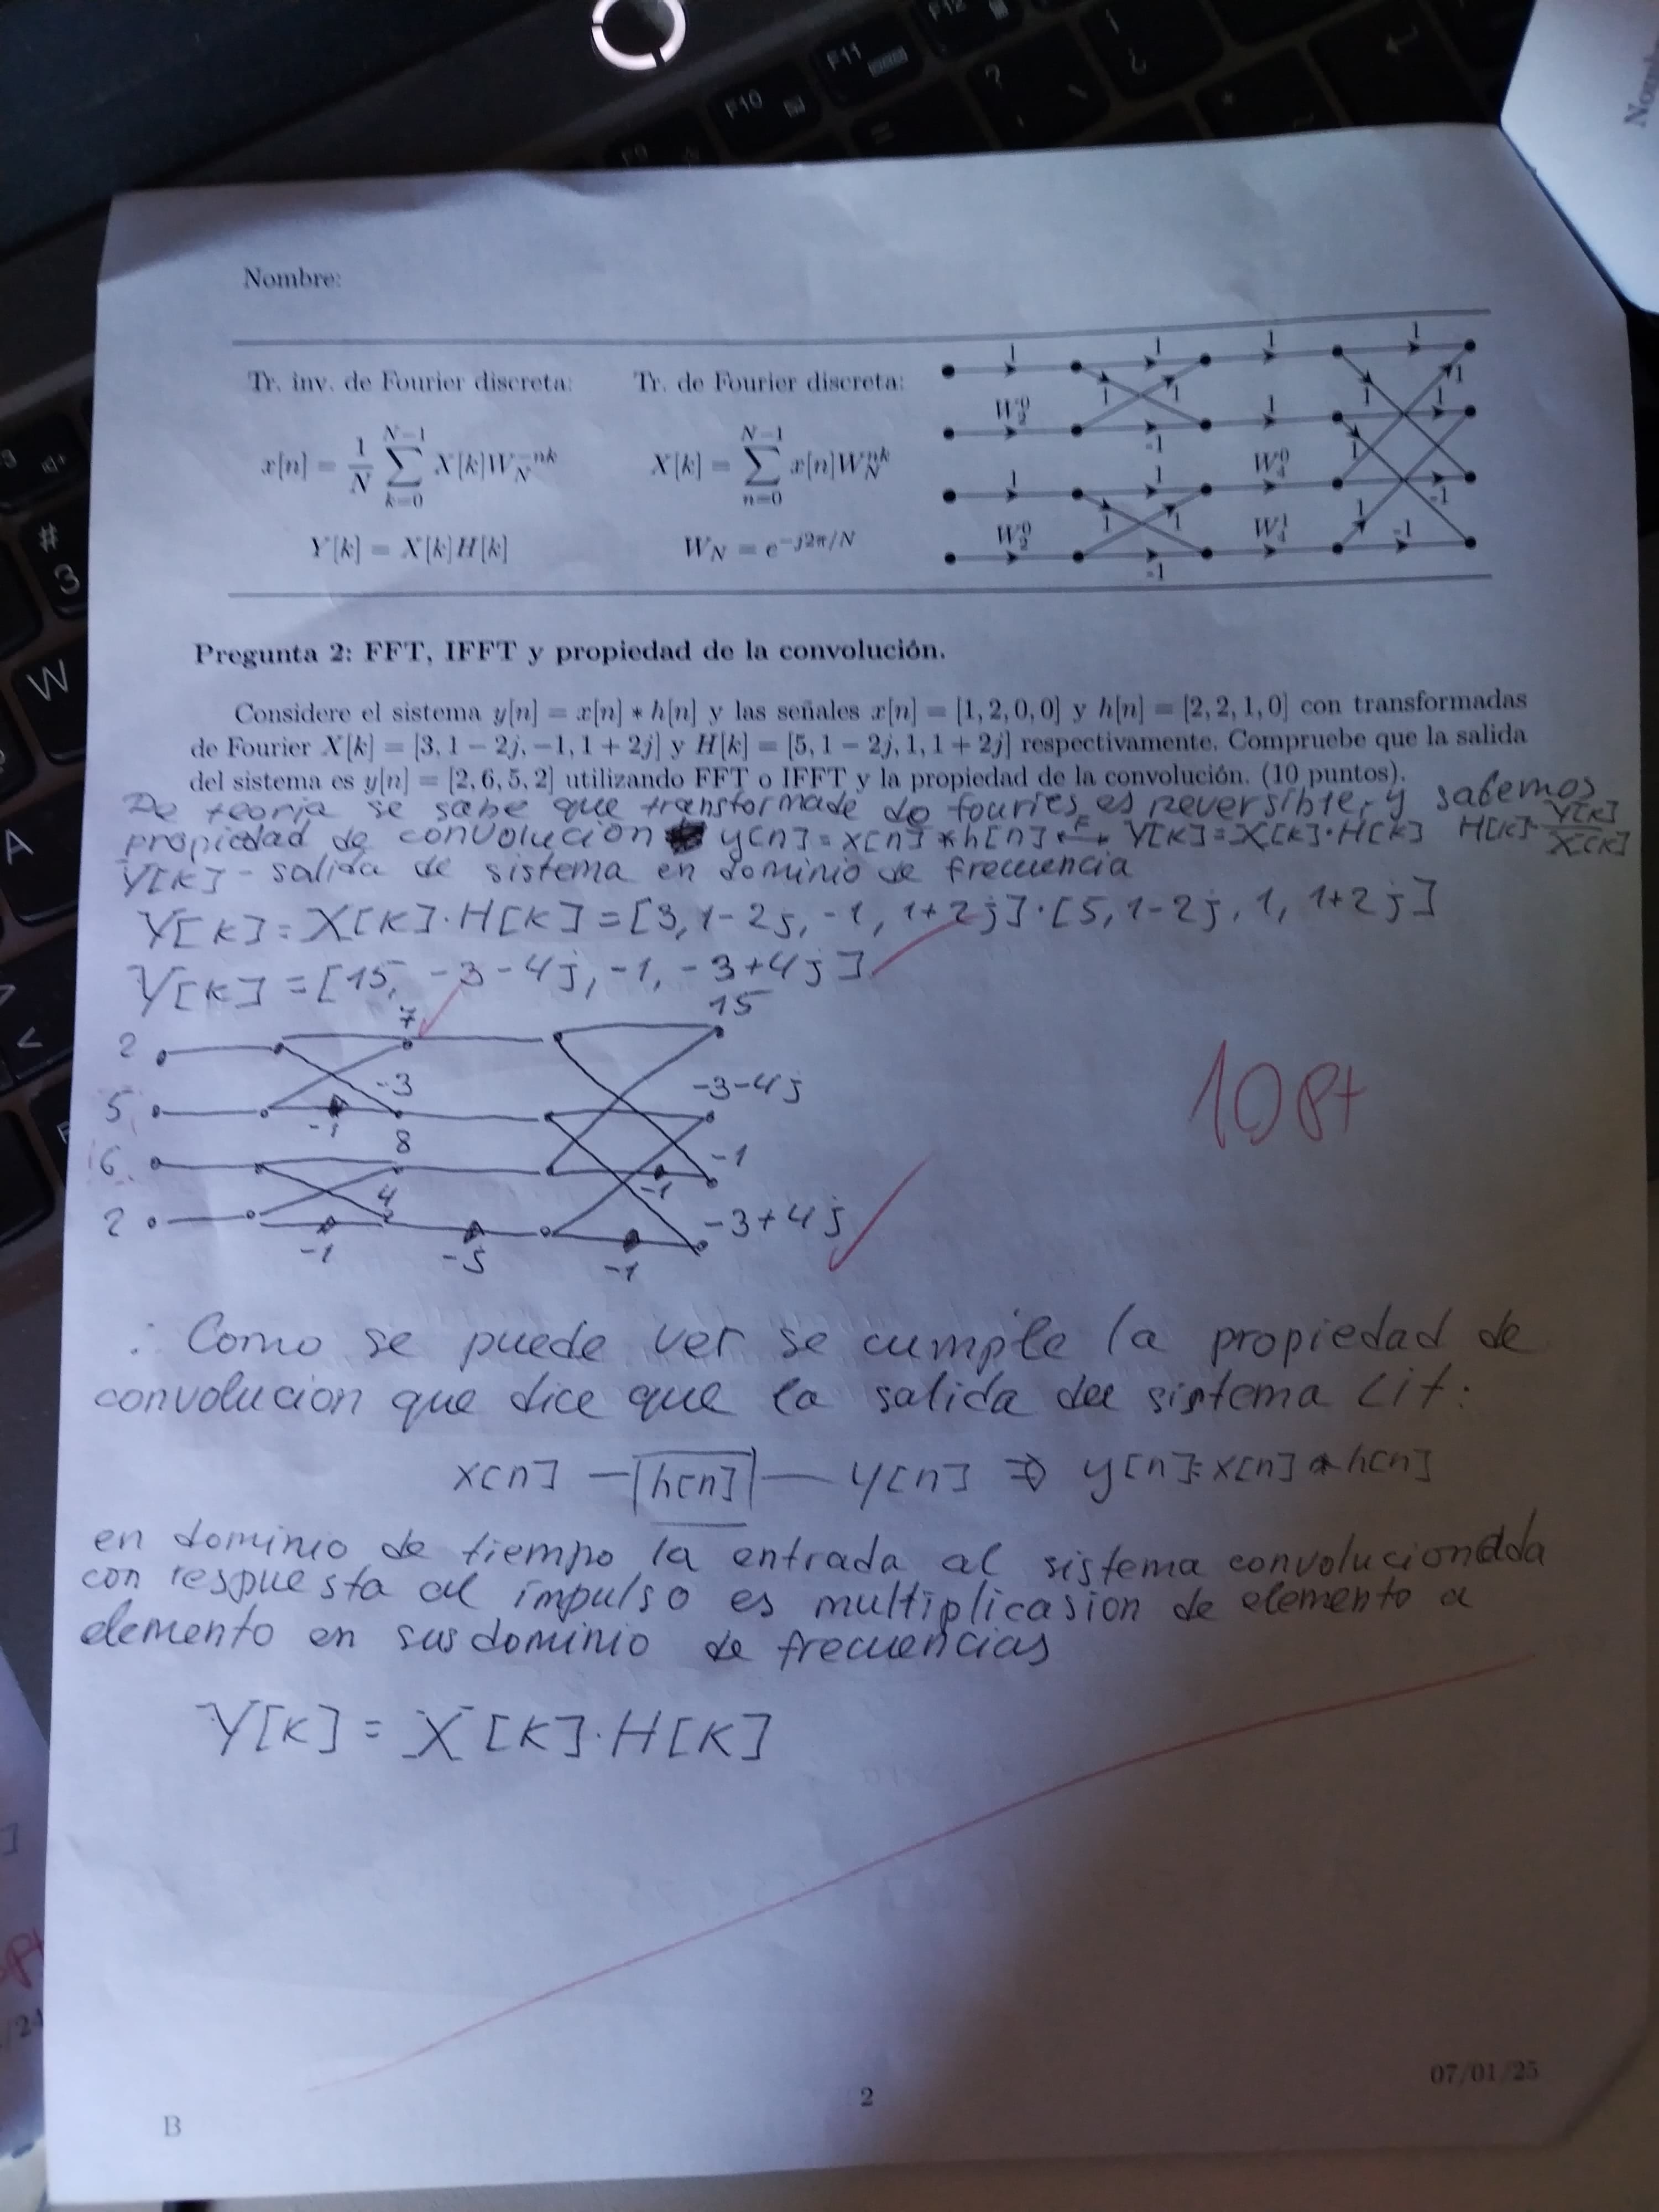 F12
F11
F10
F9
#
3
W
A
Nombre:
Tr. inv. de Fourier discreta:
x[n] = 1/N ∑_{k=0}^{N−1} X[k]W_N^{−nk}
Y[k] = X[k]H[k]
Tr. de Fourier discreta:
X[k] = ∑_{n=0}^{N−1} x[n]W_N^{nk}
W_N = e^{−j2π/N}
1 1 1 1
1 1 1 1
W_2^0 -1 1 1
1 1 W_4^0 1 -1
1 1 1
W_2^0 -1 W_4^1 -1
Pregunta 2: FFT, IFFT y propiedad de la convolución.
Considere el sistema y[n] = x[n] ∗ h[n] y las señales x[n] = [1, 2, 0, 0] y h[n] = [2, 2, 1, 0] con transformadas
de Fourier X[k] = [3, 1 − 2j, −1, 1 + 2j] y H[k] = [5, 1 − 2j, 1, 1 + 2j] respectivamente. Compruebe que la salida
del sistema es y[n] = [2, 6, 5, 2] utilizando FFT o IFFT y la propiedad de la convolución. (10 puntos).
De teoria se sabe que transformade de fouries es reversible, y sabemos
propiedad de convolucion y[n] = x[n] * h[n] ⟷ Y[k] = X[k]·H[k] H[k] = Y[k]/X[k]
Y[k] - salida de sistema en dominio de frecuencia
Y[k] = X[k]·H[k] = [3, 1-2j, -1, 1+2j]·[5, 1-2j, 1, 1+2j]
Y[k] = [15, -3-4j, -1, -3+4j]
2 7 15
5 -3 -3-4j
-1
6 8 -1
4 -1
2 -3+4j
-1 -j -1
10 Pt
∴ Como se puede ver se cumple la propiedad de
convolucion que dice que la salida del sistema Lit:
x[n] — h[n] — y[n] ⇒ y[n] = x[n] * h[n]
en dominio de tiempo la entrada al sistema convolucionada
con respuesta al impulso es multiplicasion de elemento a
elemento en sus dominio de frecuencias
Y[k] = X[k]·H[k]
07/01/25
2
B